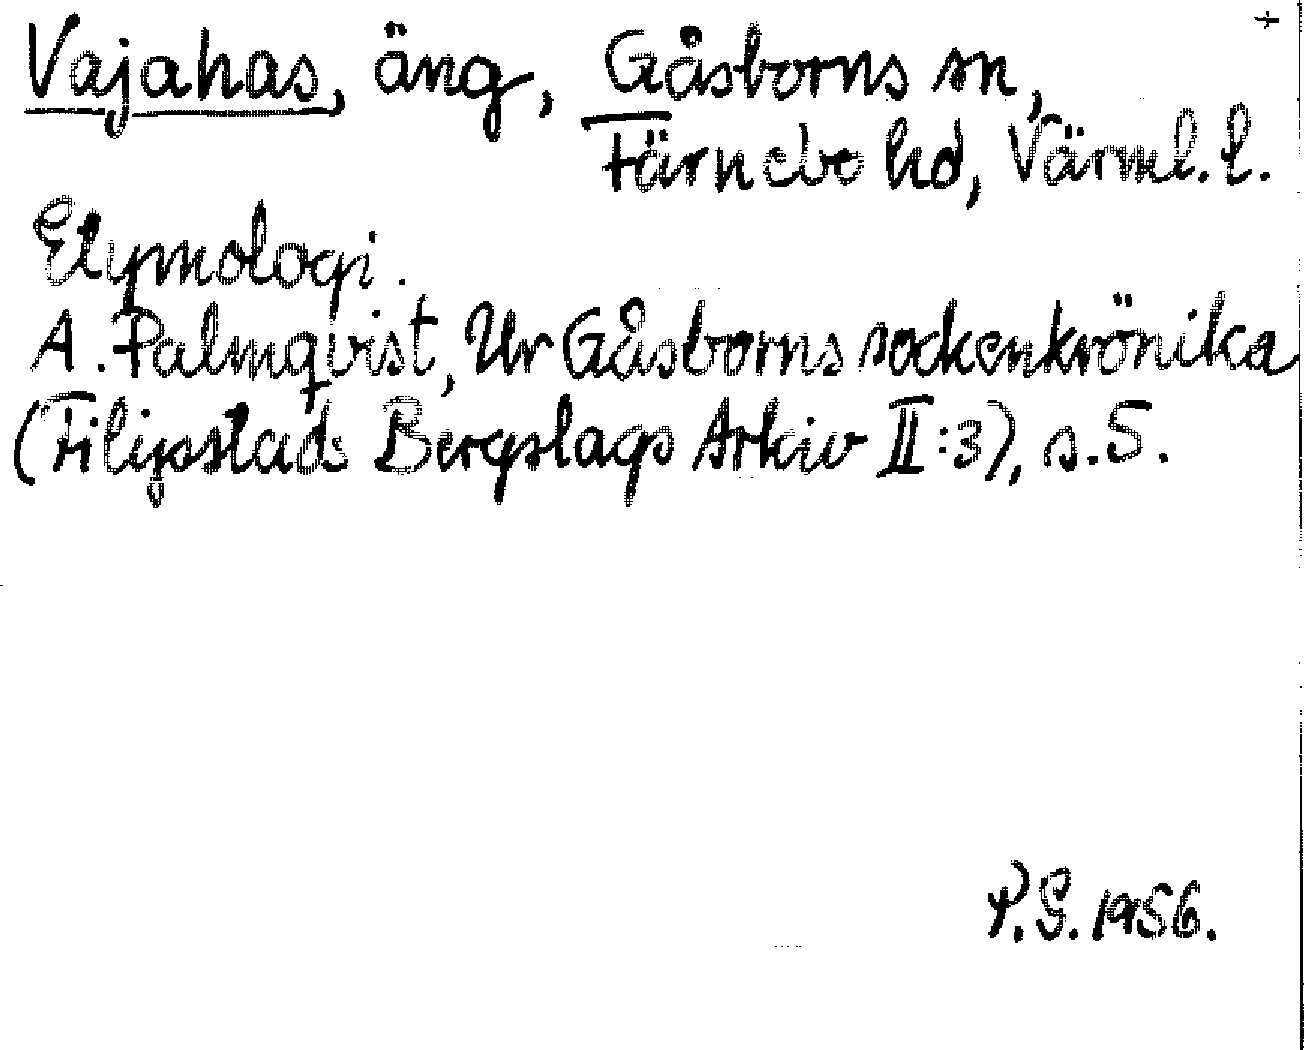 +
Vajahas, äng, Gåsborns sn,
Färnebo hd, Värml. l.
Etymologi.
A. Palmqvist, Ur Gåsborns sockenkrönika
(Filipstads Bergslags Arkiv II:3), s. 5.
P.G. 1956.